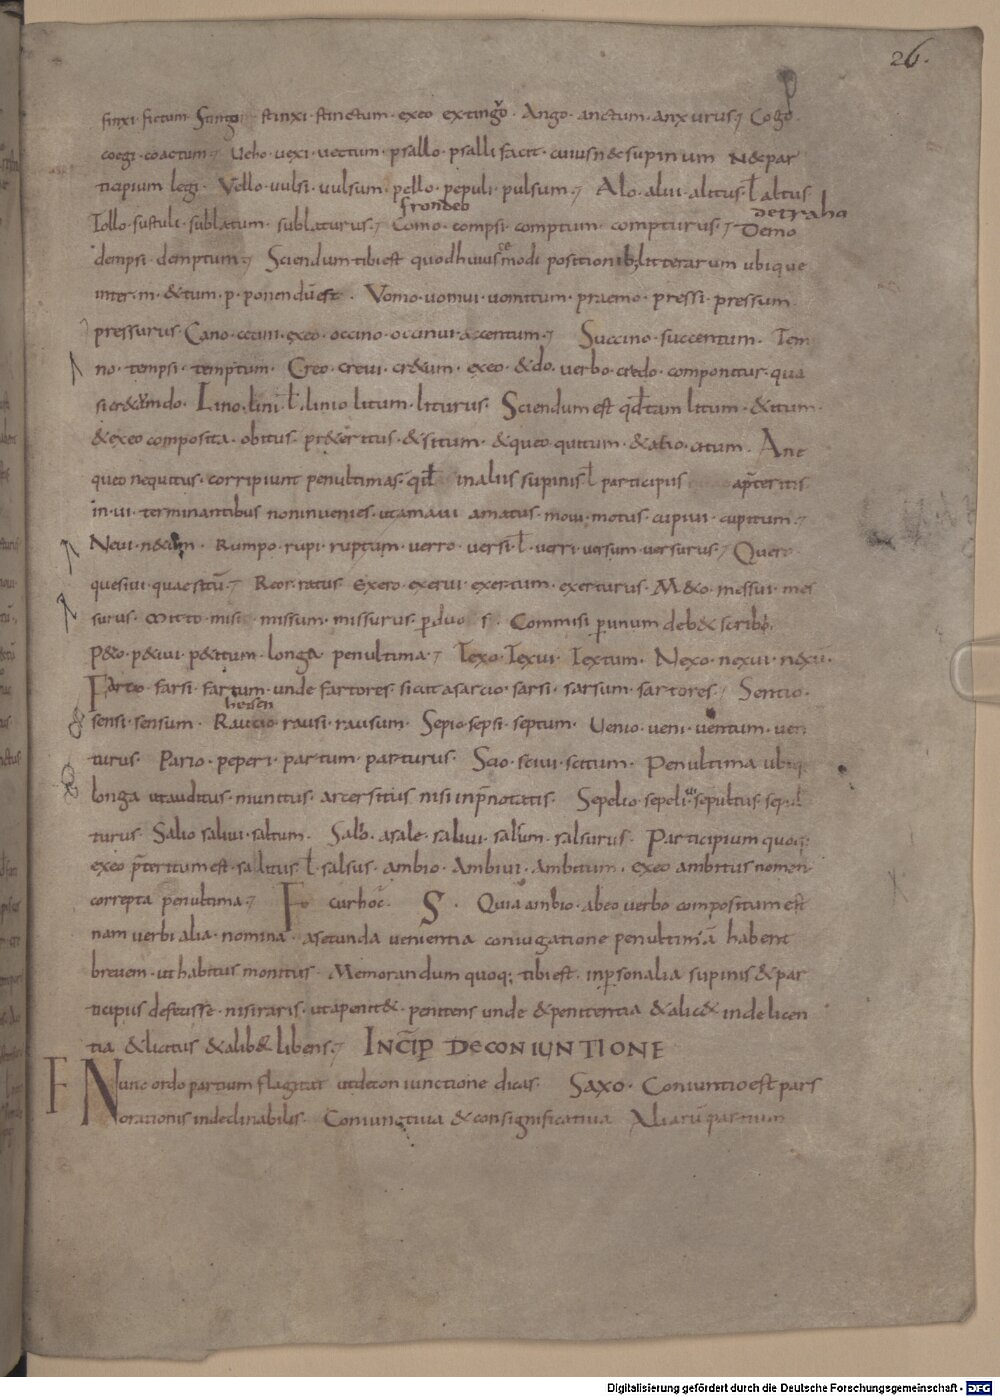 26.
finxi · fictum · Stingo stinxi · stinctum · exeo extingo · Ango · anctum · anxurus ; Cogo
coegi · coactum ; Ueho · uexi · uectum · psallo · psalli facit · cuius n& supinum n& par
ticipium legi · Vello · uulsi · uulsum · pello · pepuli · pulsum ; Alo · alui · alitus · ł altus
frondeo detraho
Tollo · sustuli · sublatum · sublaturus ; Como · compsi · comptum · compturus ; Demo
dempsi · demptum ; Sciendum tibi est quod huiuscemodi positionib; litterarum ubique
inter · m · & tum · p · ponendū est · Vomo · uomui · uomitum · praemo · pressi · pressum
pressurus · Cano · cecini · exeo · occino · occinui · occentum ; Succino · succentum · Tem
no · tempsi · temptum · Creo · creui · cr&um · exeo · & do · uerbo · credo · componitur · qua
si cr&um do · Lino · lini · ł · linio litum · liturus · Sciendum est qđ tam litum · & itum ·
& exeo composita · obitus · pr&eritus · & situm · & queo · quitum · & atio · citum · At
queo nequitus · corripiunt penultimas · qđ in aliis supinis ł participiis a p̄teritis
in · ui · terminantibus non inuenies · ut amaui amatus · moui · motus · cupiui · cupitum ;
Neui · n&um · Rumpo · rupi · ruptum · uerro · uersi · ł · uerri · uersum · uersurus ; Quero
quesiui · quaesitū ; Reor · ratus Exero · exerui · exertum · exerturus · M&o · messui · mes
surus · Mitto · misi missum · missurus · p duo · s · Commisi p unum deb& scribi ·
P&o · p&iui · p&itum · longa penultima ; Texo · Texui · Textum · Nexo · nexui · nexū ·
Farcio · farsi · fartum · unde fartores · sicut a sarcio · sarsi · sarsum · sartores ; Sentio ·
heisen
sensi · sensum · Raucio · rausi · rausum · Sepio · sepsi · septum · Uenio · ueni · uentum · uen
turus · Pario · peperi · partum · parturus · Scio · sciui · scitum · Penultima ubiq;
longa ut auditus · munitus · arcersitus nisi in p̄notatis · Sepelio · sepeliui · sepultus · sepul
turus · Salio saliui · saltum · Salio · a sale · saliui · salsum · salsurus · Participium quoq;
exeo p̄teritum est · salitus · ł · salsus · ambio · Ambiui · Ambitum · exeo ambitus nomen
correpta penultima ; F cur hoc · S · Quia ambio · ab eo uerbo compositum est
nam uerbialia · nomina · a secunda uenientia coniugatione penultimā habent
breuem · ut habitus monitus · Memorandum quoq; tibi est · inpersonalia supinis & par
ticipiis defecisse · nisi raris · ut a penit& · penitens unde & penitentia & a lic& inde licen
tia & licitus & a lib& libens ; INCIP DE CONIUNTIONE
F Nunc ordo partium flagitat ut de coniunctione dicas · Saxo · Coniuntio est pars
orationis indeclinabilis · Coniunctiua & consignificatiua Aliarū partium
Digitalisierung gefördert durch die Deutsche Forschungsgemeinschaft - DFG